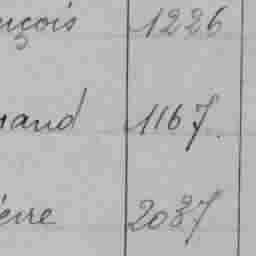 nçois 1226
nand 1167
ierre 2037